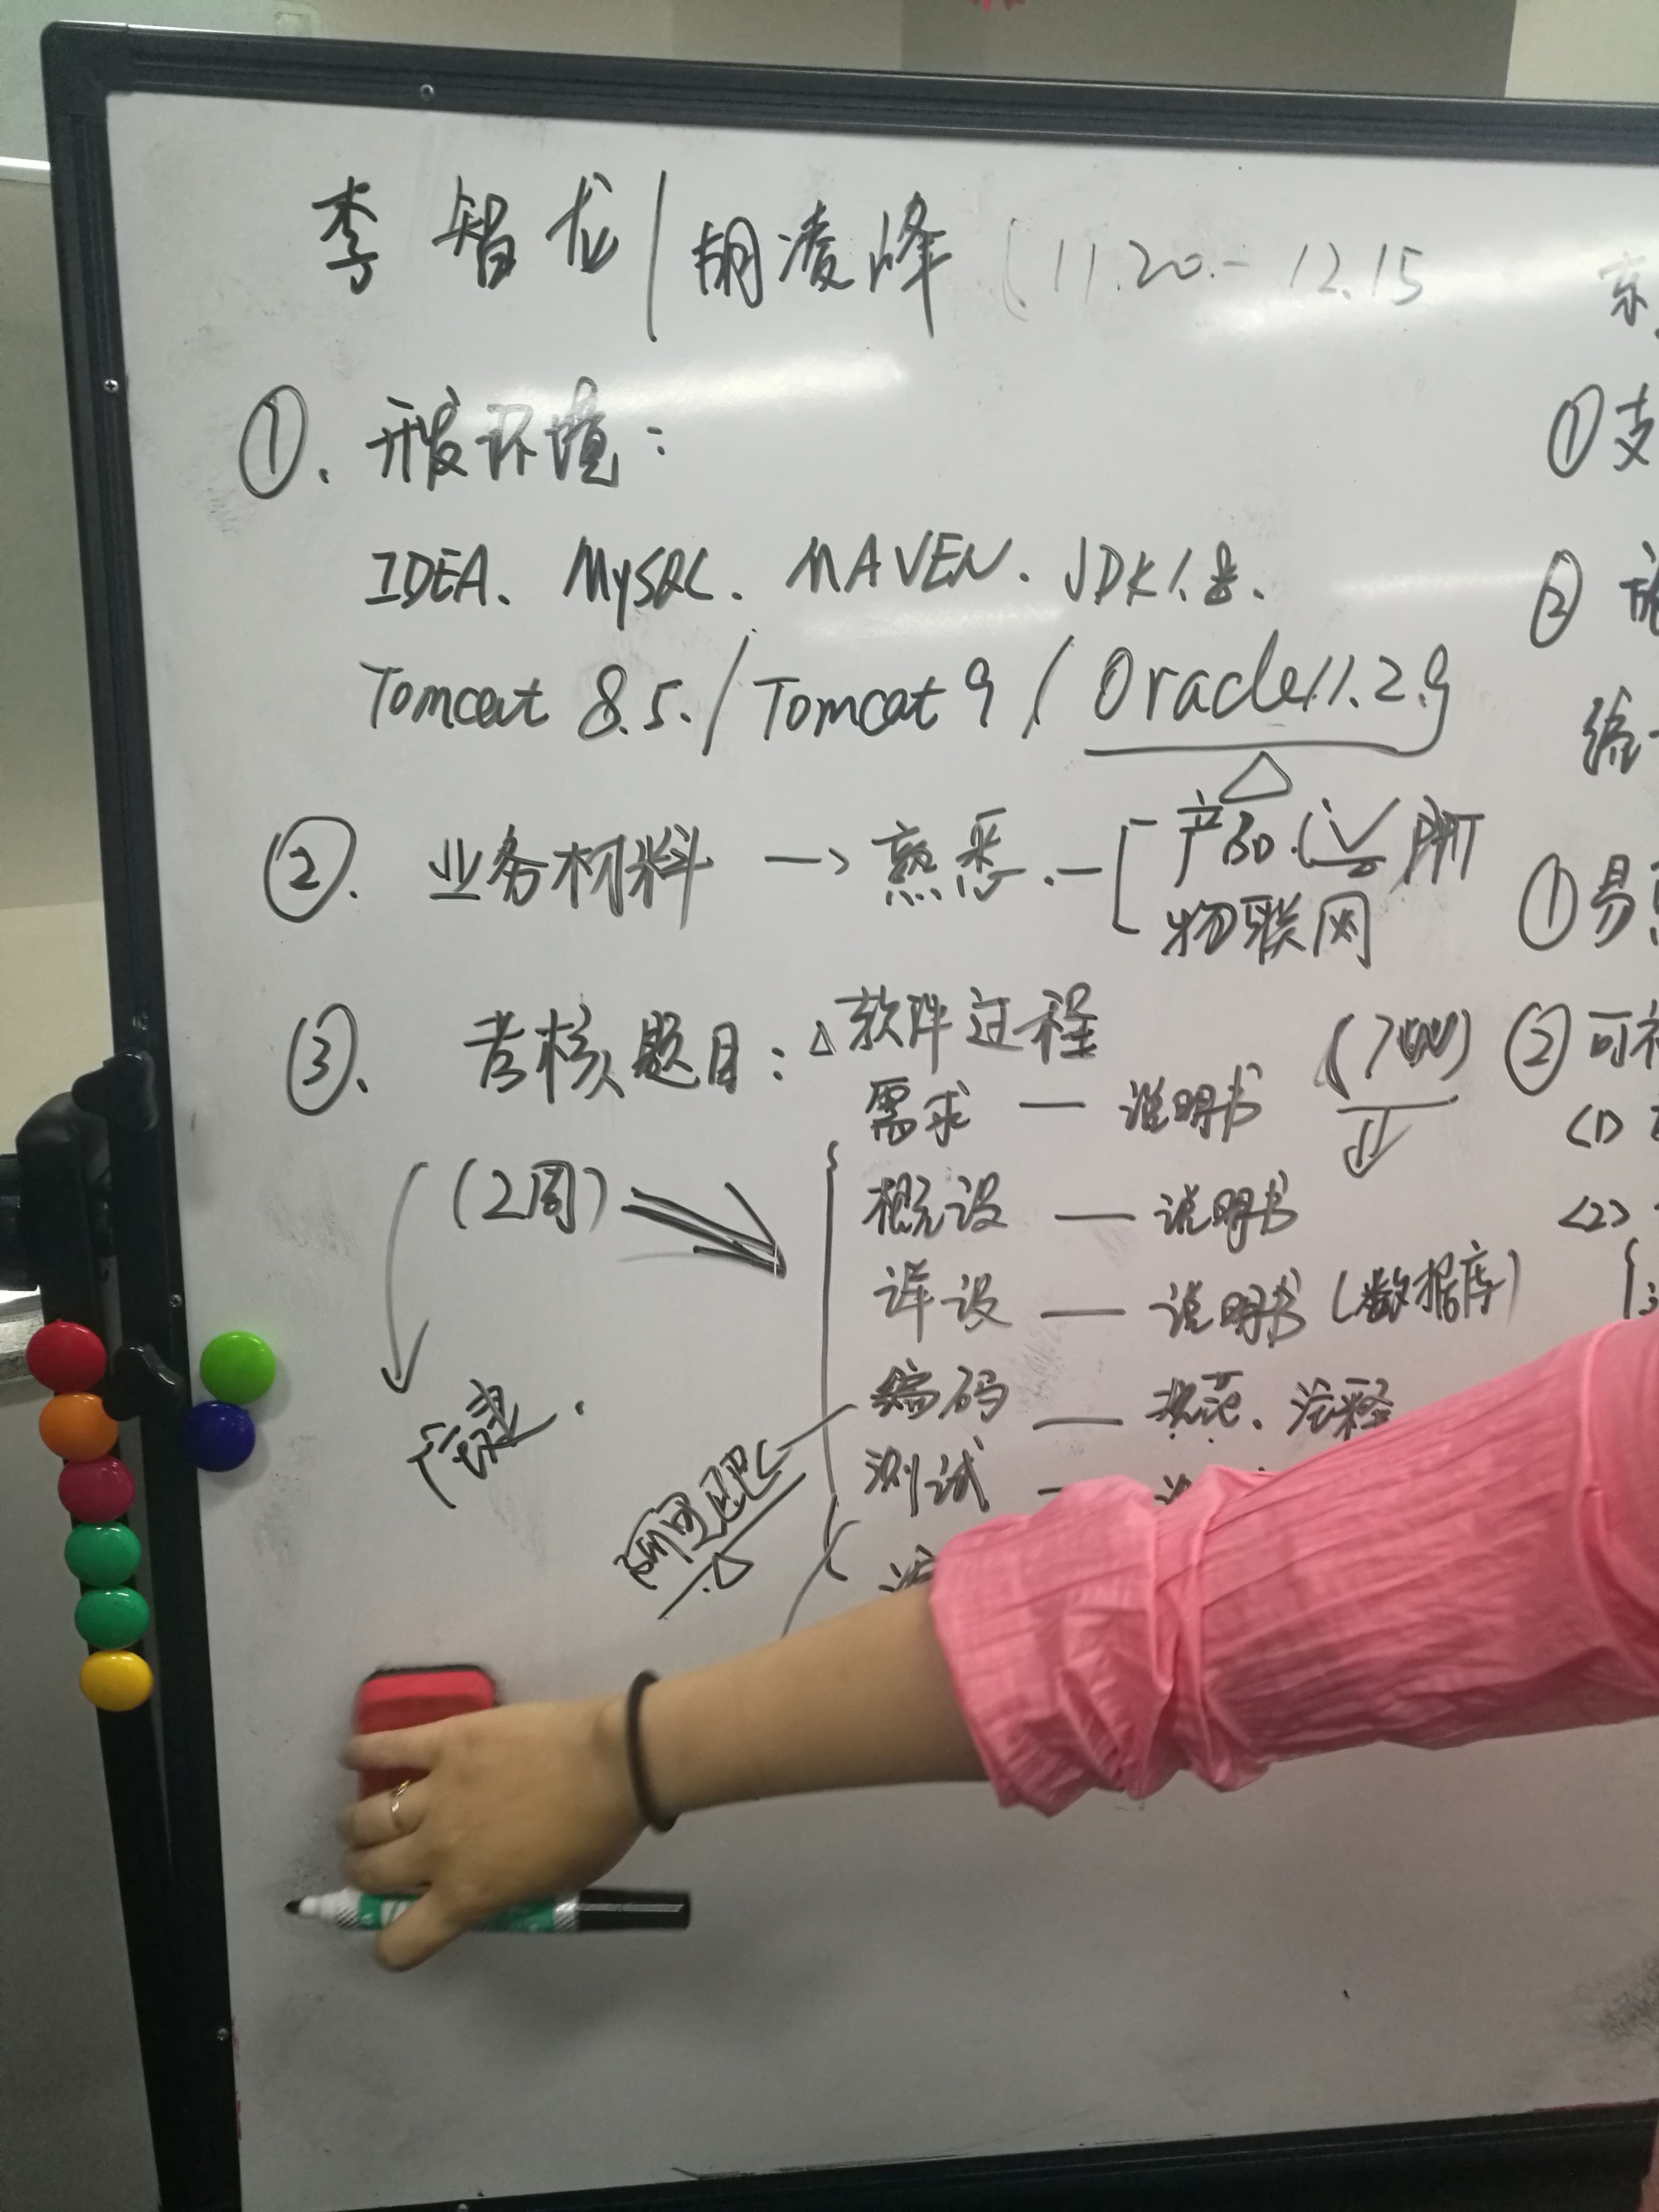 李智龙/胡凌峰 (11.20.- 12.15
①. 开发环境:
IDEA. MySQL. MAVEN. JDK1.8.
Tomcat 8.5./Tomcat 9 / Oracle11.2.g
②. 业务材料 → 熟悉.
产品
物联网
③. 考核题目: △软件过程
需求 — 说明书
(2周)
概设 — 说明书
详设 — 说明书 (数据库)
编码 — 规范. 注释
测试 —
①支
②
①易
②可视
<1>
<2>